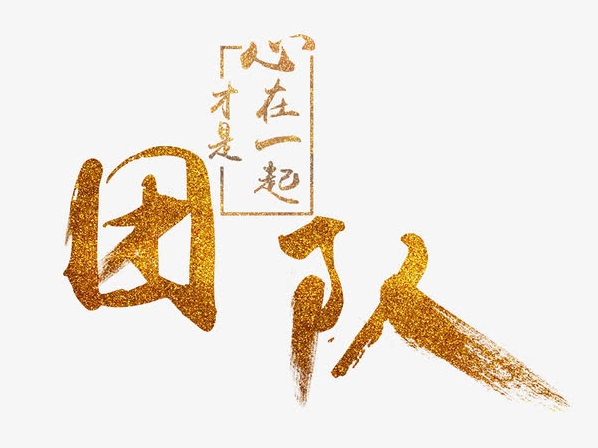 心在一起
才是
团队